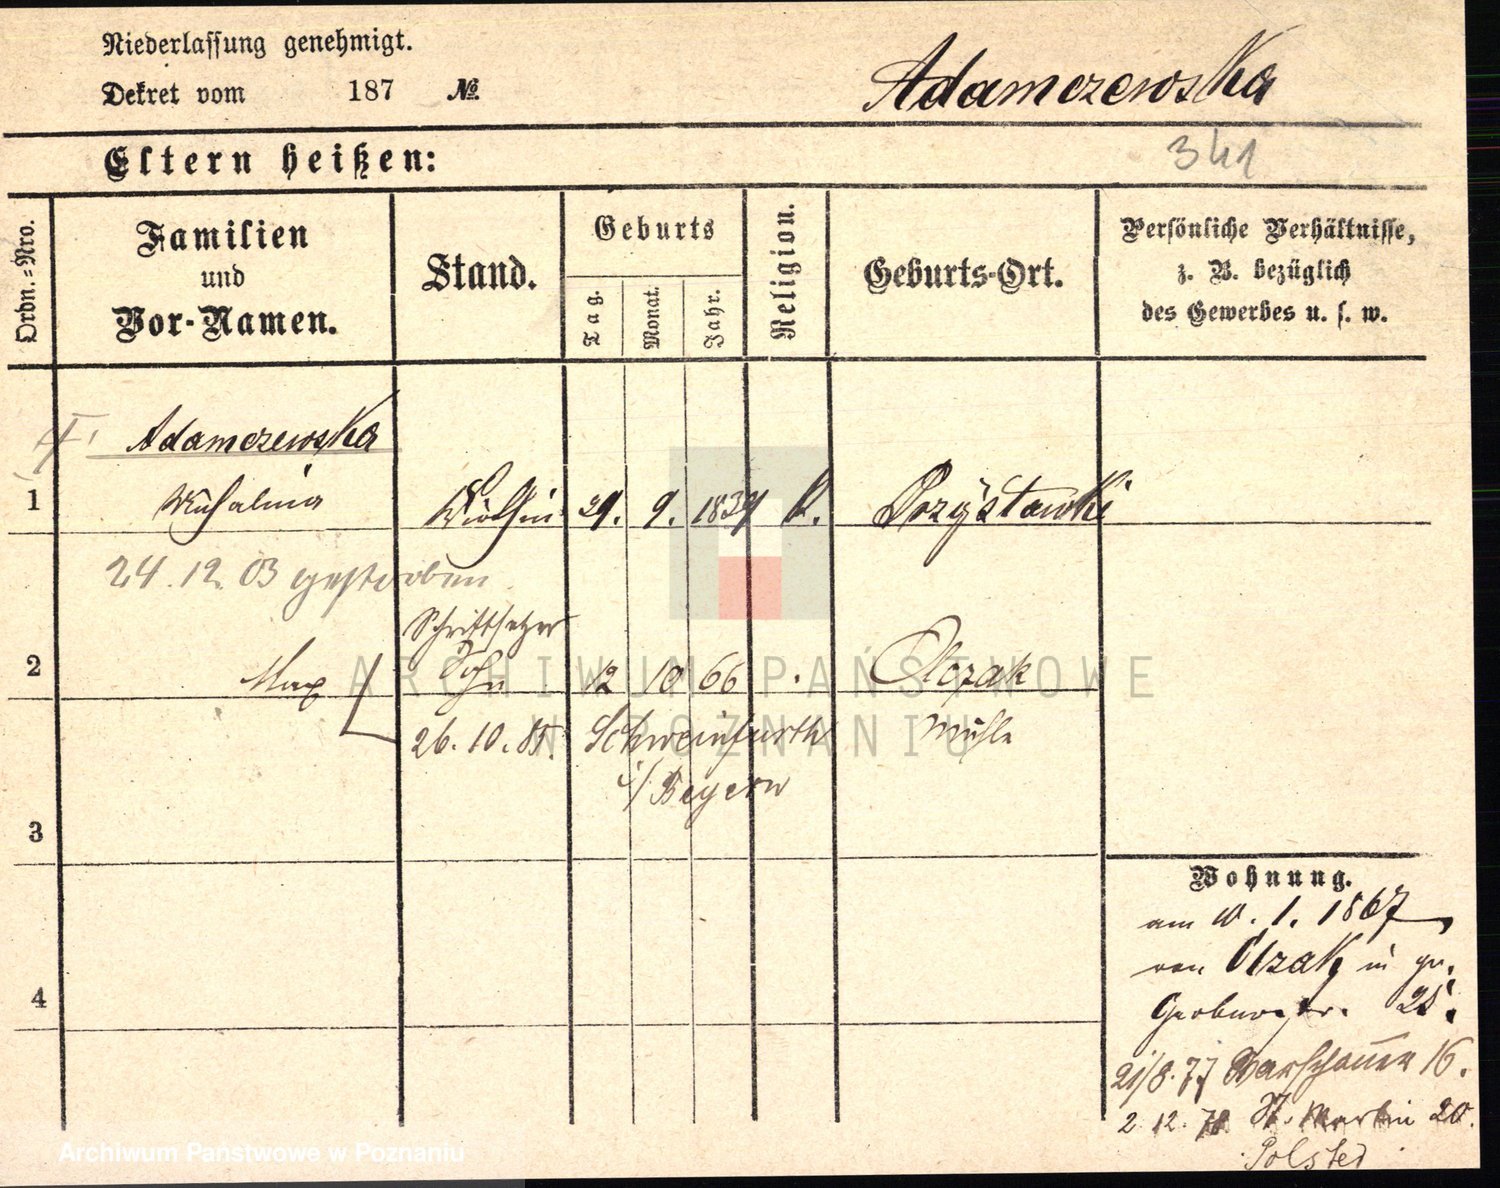 Niederlassung genehmigt.
Dekret vom 187 №
Adamczewska
341
Eltern heißen:
Ordn.=Nro.
Familien
und
Vor-Namen.
Stand.
Geburts
Tag.
Monat.
Jahr.
Religion.
Geburts-Ort.
Persönliche Verhältnisse,
z. B. bezüglich
des Gewerbes u. s. w.
Adamczewska
1 Michalina 29. 9. 1839 k.
24.12.03 gestorben
Schriftsetzer
2 Max Sohn 12 10 66 Olczak
26.10.85. Schweinfurth Mühle
i/ Beyern
3
Wohnung.
am 10. 1. 1867
von Olzak in
4
Grabenstr. 25.
21/8.77 Warschauer 16.
2.12.78 St. Martin 20.
ARCHIWUM PAŃSTWOWE
W POZNANIU
Archiwum Państwowe w Poznaniu